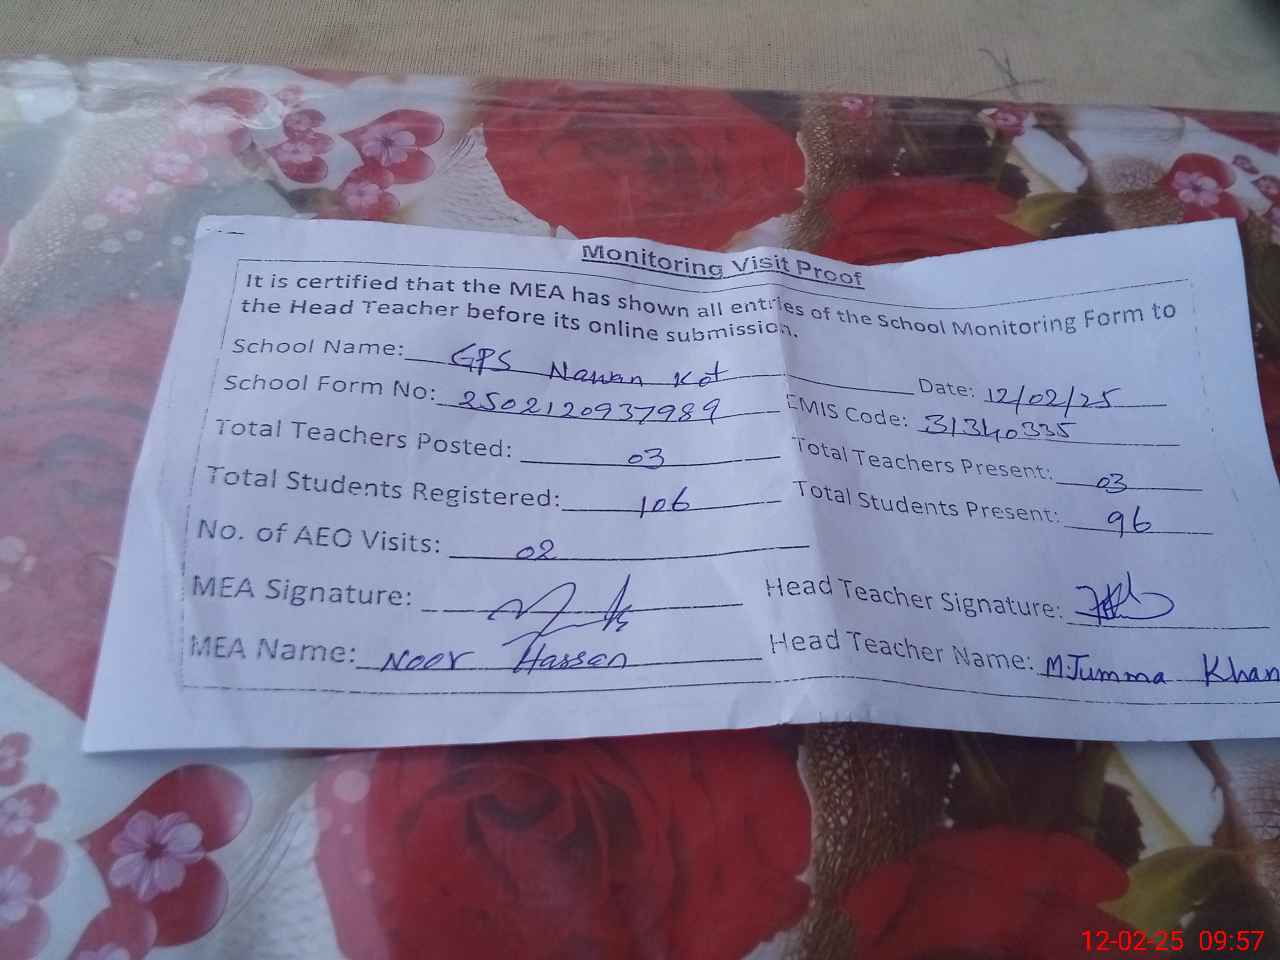 Monitoring Visit Proof
It is certified that the MEA has shown all entries of the School Monitoring Form to
the Head Teacher before its online submission.
School Name: GPS Nawan Kot Date: 12/02/25
School Form No: 2502120937989 EMIS Code: 31340335
Total Teachers Posted: 03 Total Teachers Present: 03
Total Students Registered: 106 Total Students Present: 96
No. of AEO Visits: 02
MEA Signature: Head Teacher Signature:
MEA Name: Noor Hassan Head Teacher Name: M.Jumma Khan
12-02-25 09:57